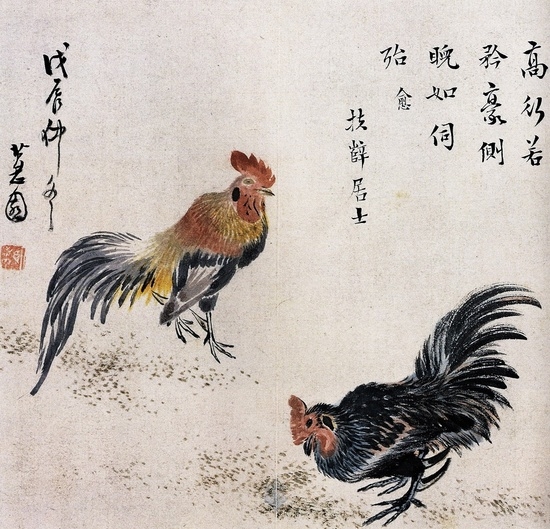 高行若
矜豪側
睨如伺
殆 愈
扶薜居士
戊辰仲冬
蕙園